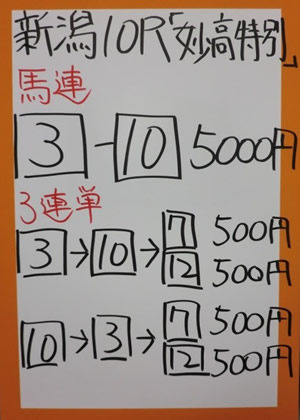 新潟10R「妙高特別」
馬連
3-10 5000円
3連単
3→10→7 500円
12 500円
10→3→7 500円
12 500円